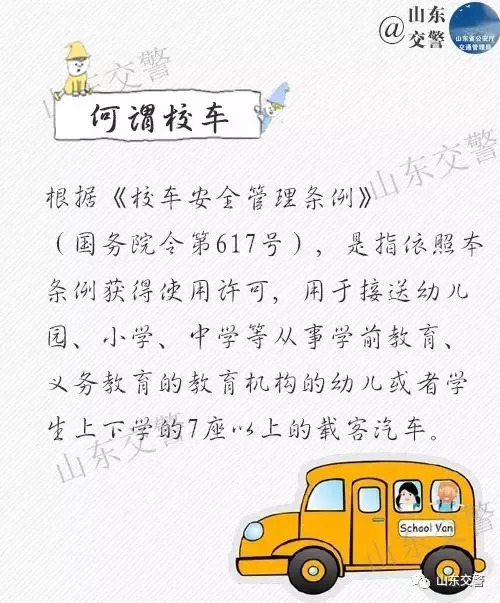 @山东
交警
山东省公安厅
交通管理局
山东交警
何谓校车
山东交警
根据《校车安全管理条例》
（国务院令第617号），是指依照本
条例获得使用许可，用于接送幼儿
园、小学、中学等从事学前教育、
义务教育的教育机构的幼儿或者学
生上下学的7座以上的载客汽车。
山东交警
School Van
山东交警
山东交警